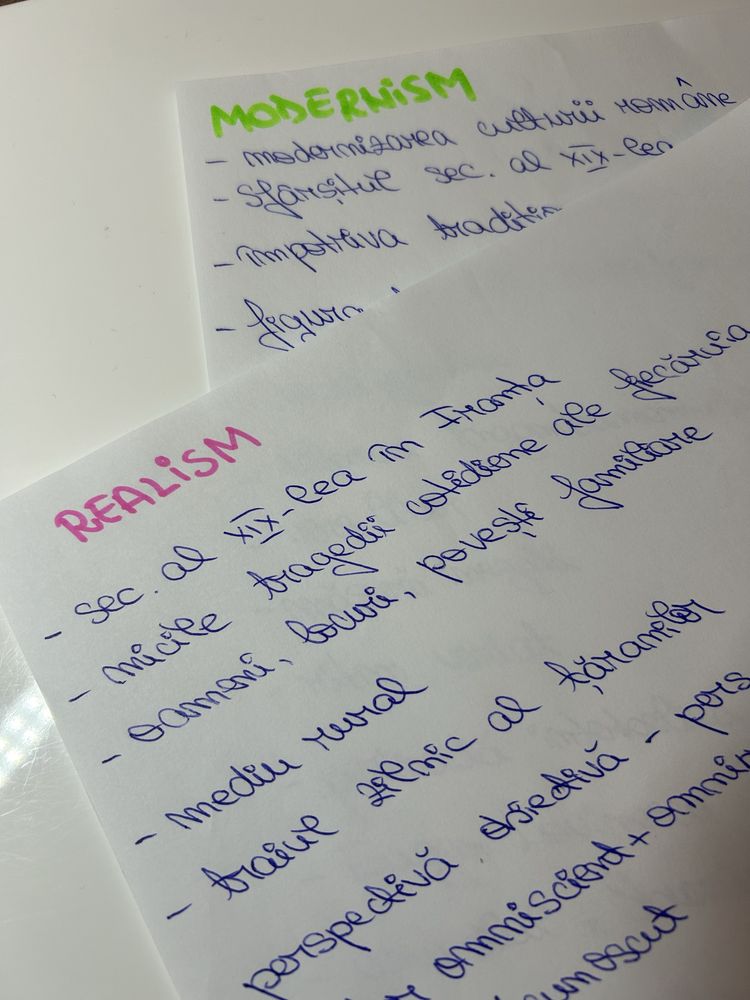 MODERNISM
- modernizarea culturii române
- sfârșitul sec. al XIX-lea
- împotriva
-
REALISM
- sec. al XIX-lea în Franța
- micile tragedii cotidiene ale fiecăruia
- oameni, locuri, povești familiare
- mediu rural
- traiul zilnic al țăranilor
perspectivă obiectivă - pers
omniscient +